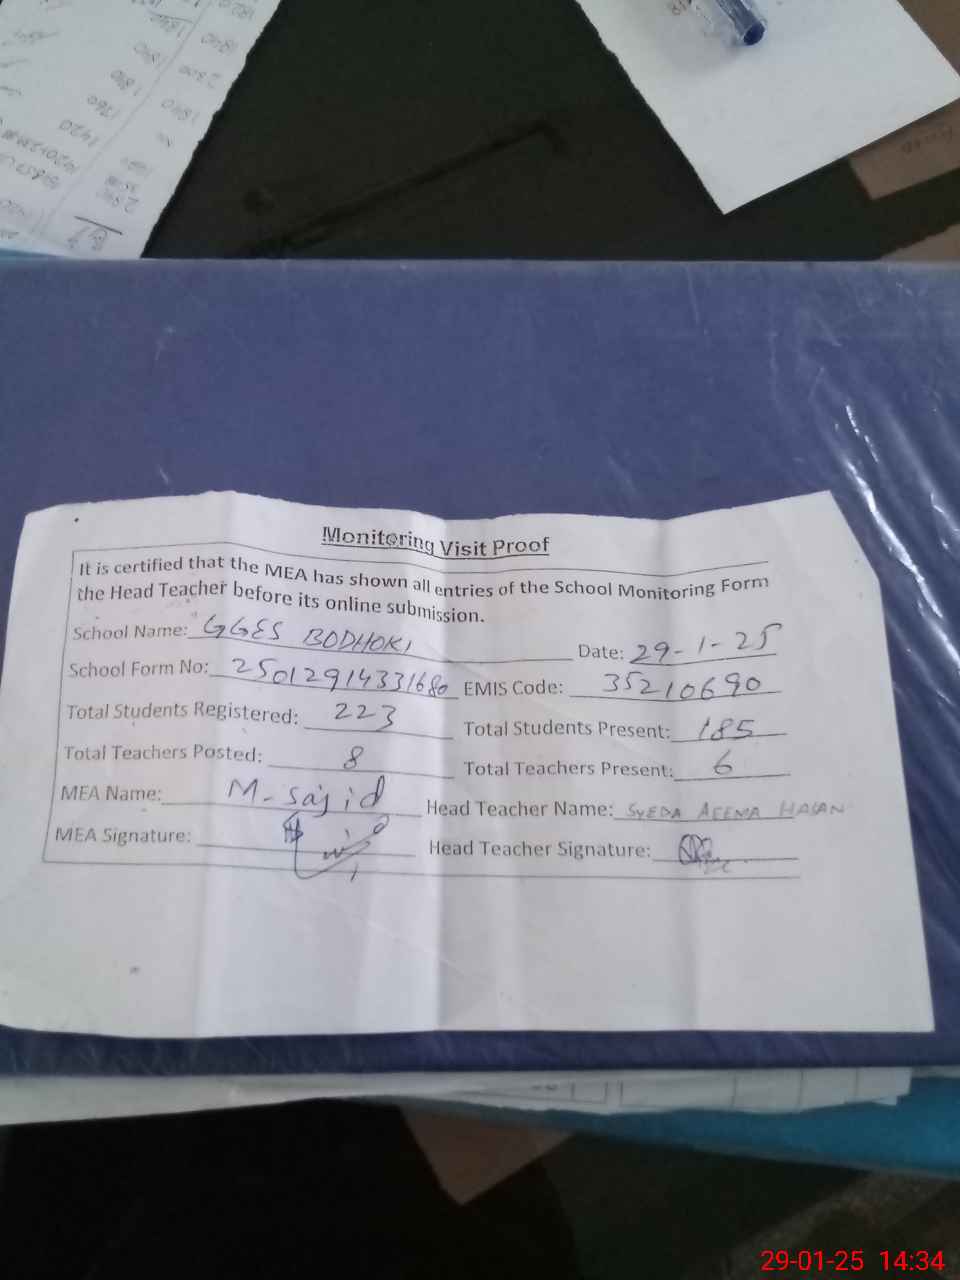 Monitoring Visit Proof
It is certified that the MEA has shown all entries of the School Monitoring Form
the Head Teacher before its online submission.
School Name: GGES BODHOKI Date: 29-1-25
School Form No: 25012914331680 EMIS Code: 35210690
Total Students Registered: 223 Total Students Present: 185
Total Teachers Posted: 8 Total Teachers Present: 6
MEA Name: M-Sajid Head Teacher Name: SYEDA HASAN
MEA Signature: Head Teacher Signature:
29-01-25 14:34